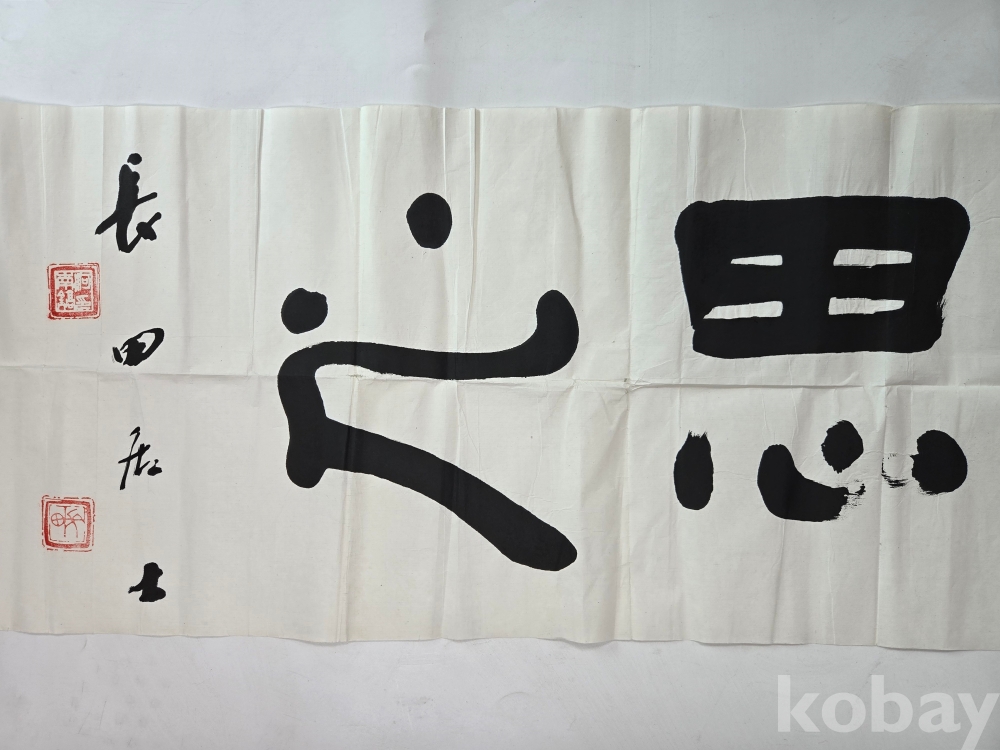 思之
長田居士
kobay